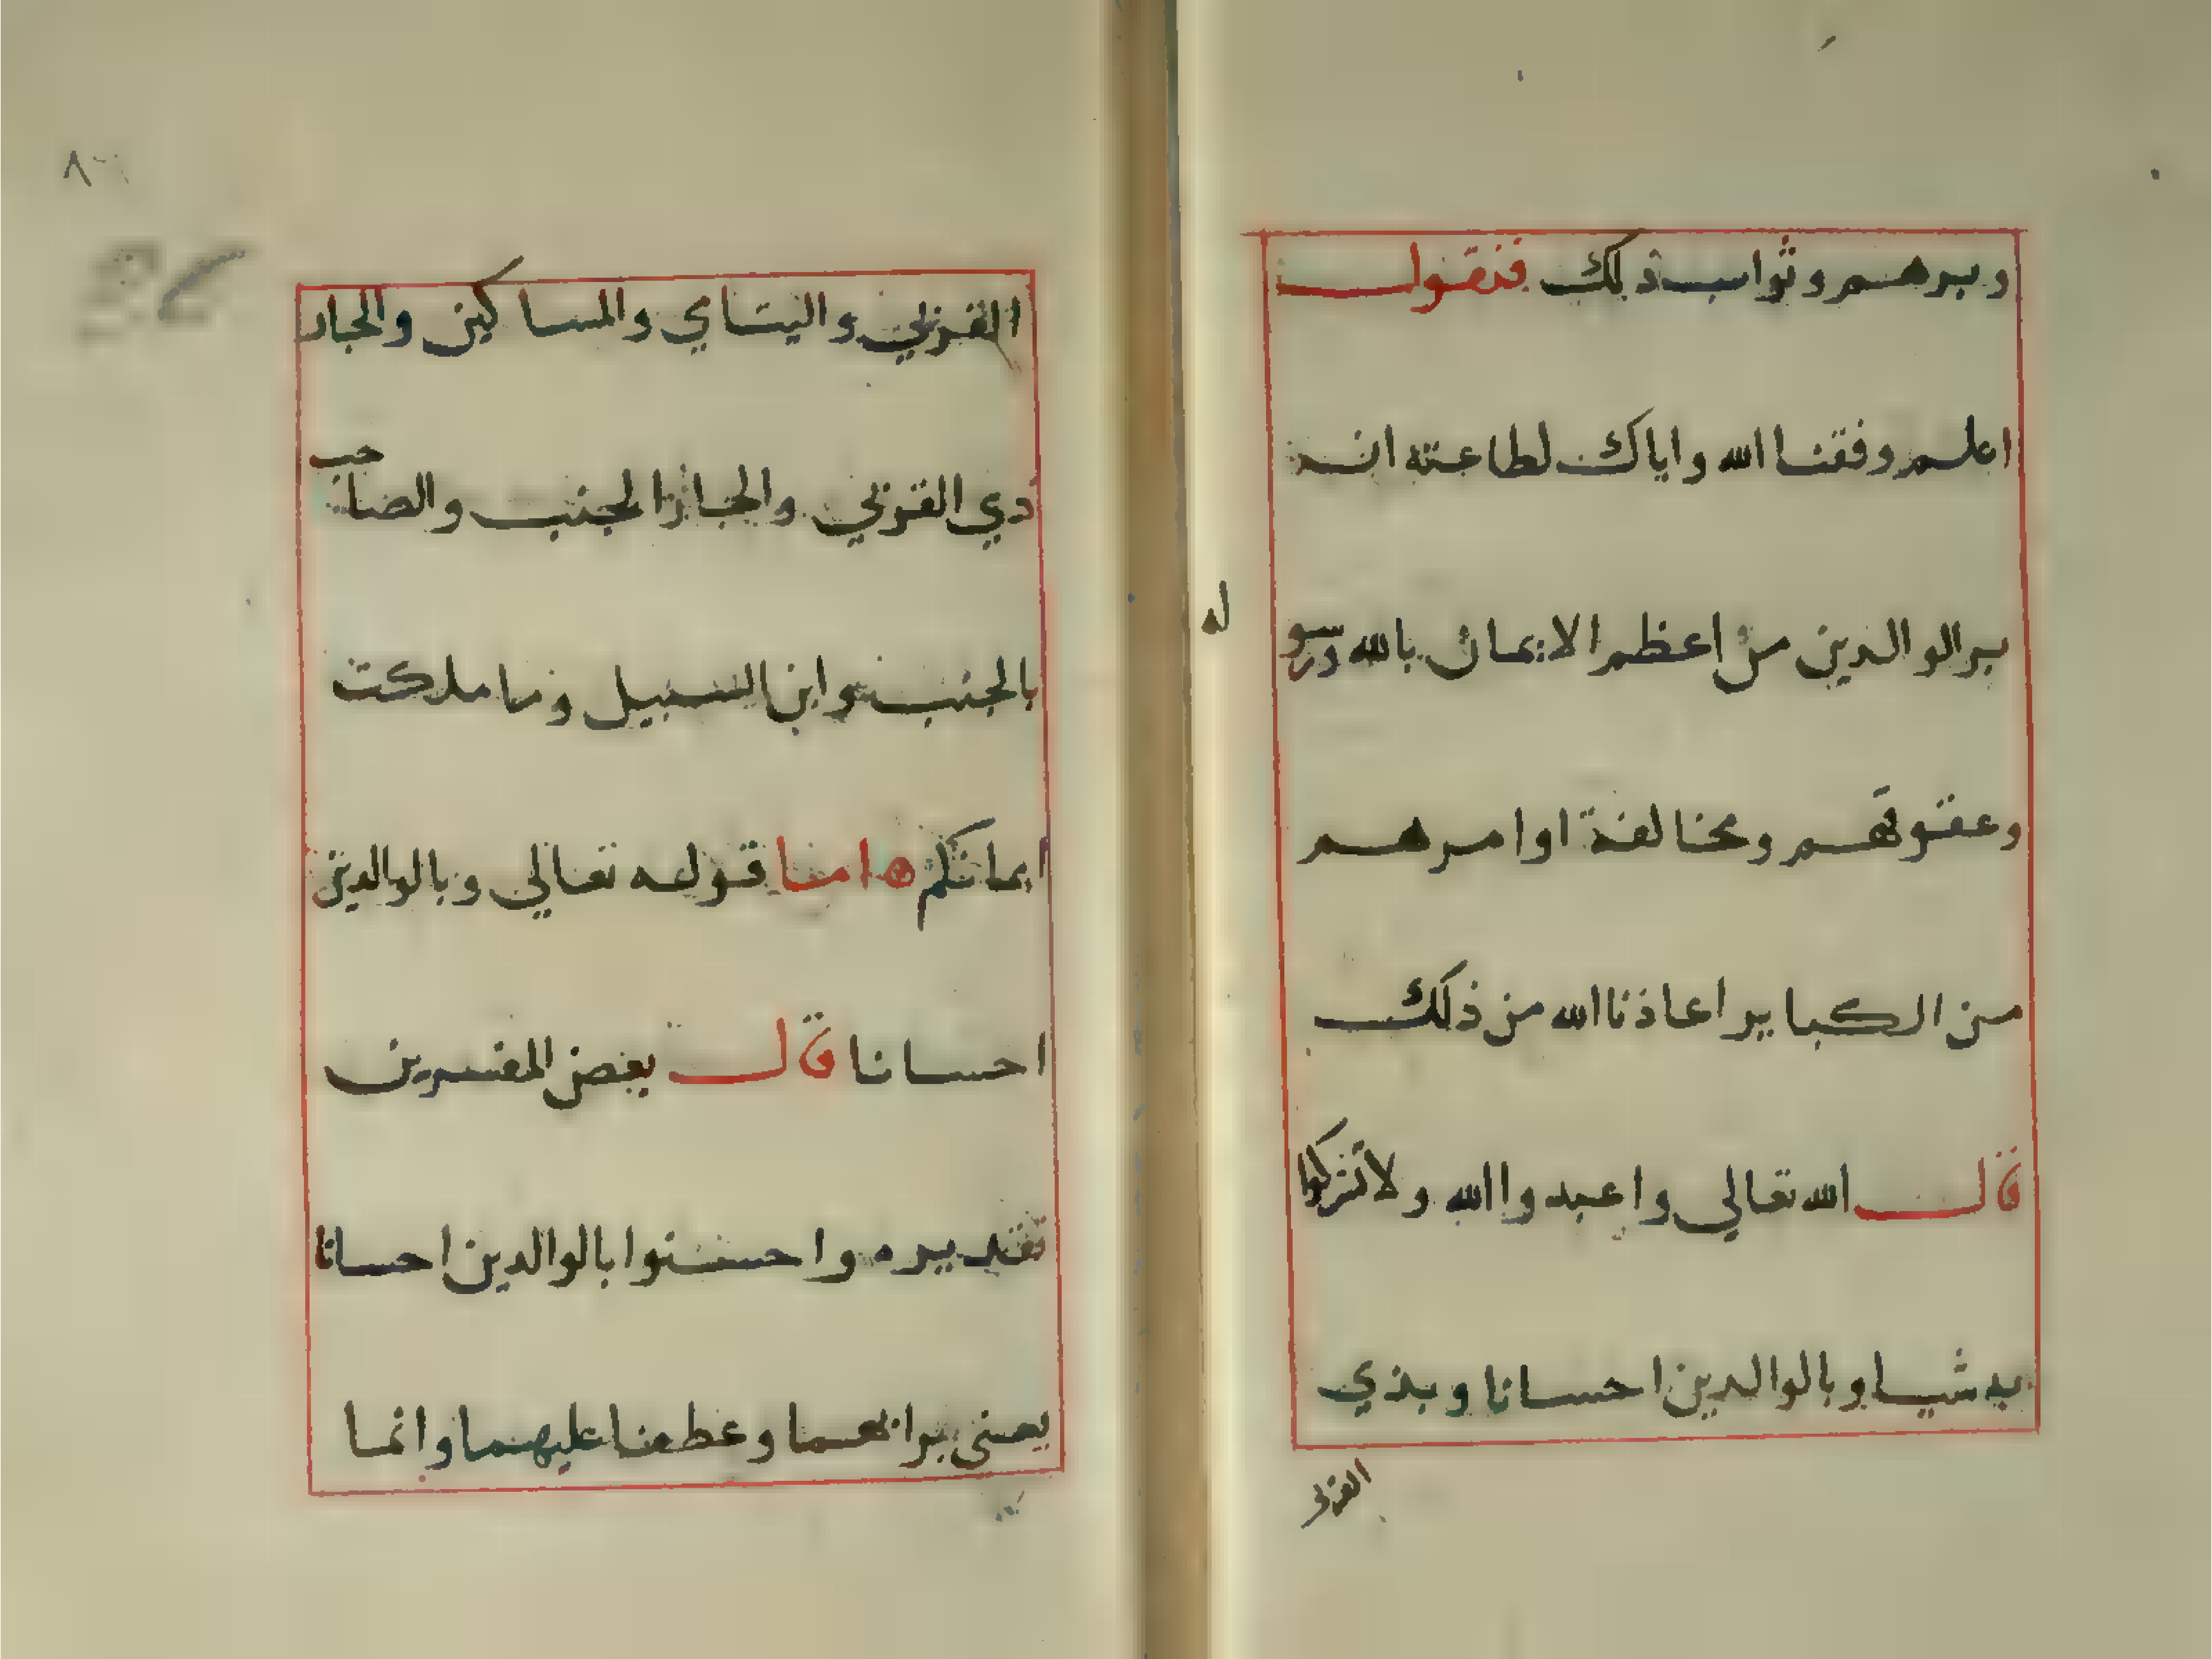 وبرهم وثواب ذلك فنقول
اعلم وفقنا الله واياك لطاعته ان
بر الوالدين من اعظم الايمان بالله ورسو
له
وعقوقهم ومخالفة اوامرهم
من الكباير اعاذنا الله من ذلك
قال الله تعالي واعبدوا الله ولا تشركوا
به شيا وبالوالدين احسانا وبذي
القربي
القربي واليتامي والمساكين والجار
ذي القربي والجار الجنب والصاحب
بالجنب وابن السبيل وما ملكت
ايمانكم امنا قوله تعالي وبالوالدين
احسانا قال بعض المفسرين
تقديره واحسنوا بالوالدين احسانا
يعني برا بهما وعطفا عليهما وانما